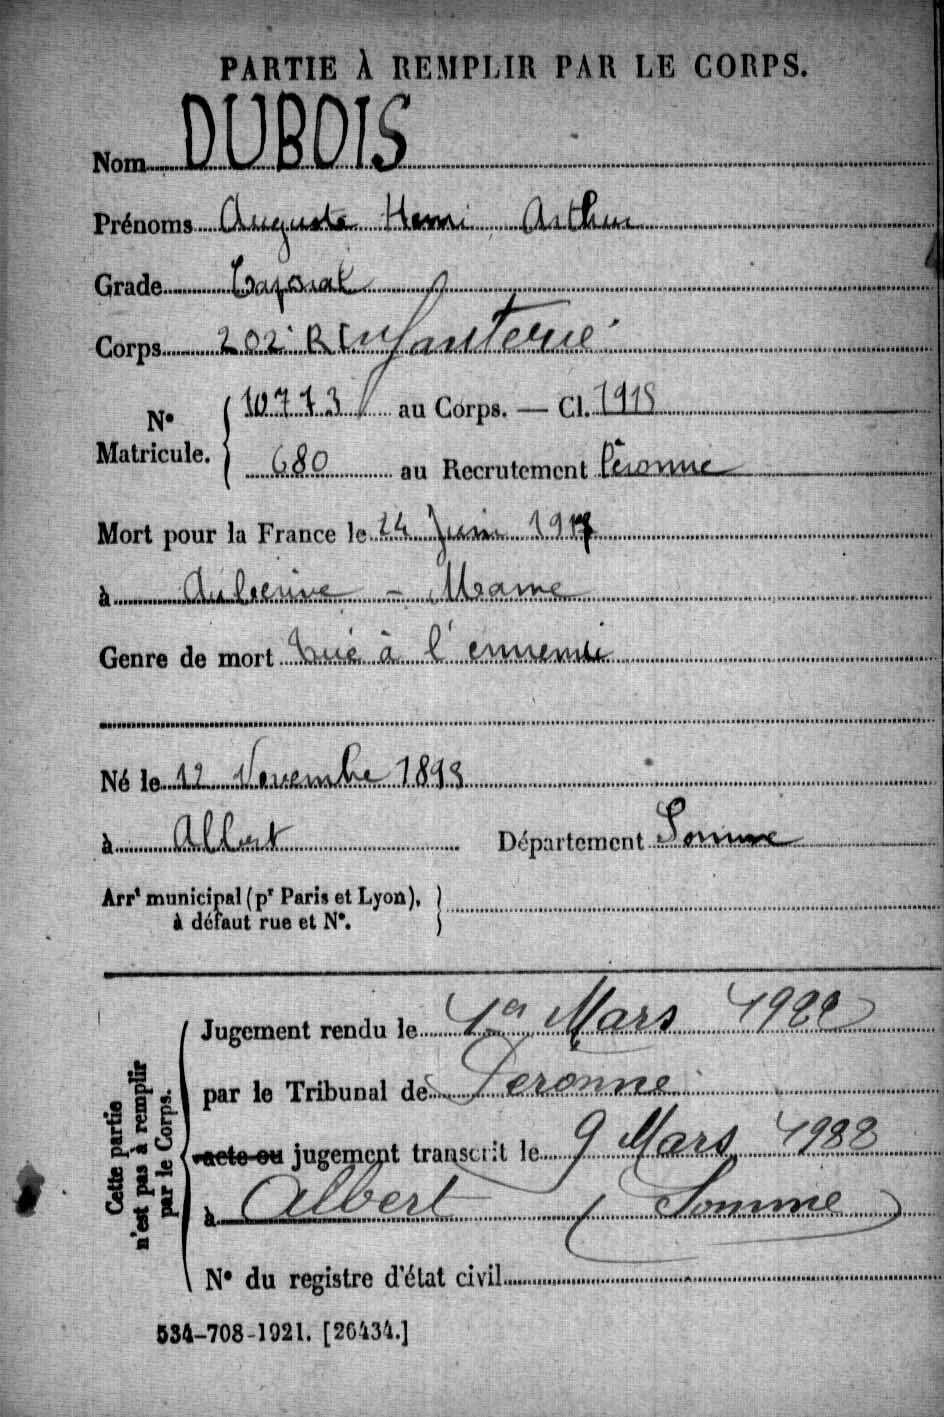 PARTIE À REMPLIR PAR LE CORPS.
Nom DUBOIS
Prénoms Auguste Henri Arthur
Grade Caporal
Corps 202e R Infanterie
N° Matricule. 10773 au Corps. — Cl. 1915
680 au Recrutement Péronne
Mort pour la France le 24 Juin 1917
à Auberive - Marne
Genre de mort Tué à l'ennemi
Né le 12 Novembre 1895
à Albert Département Somme
Arrt municipal (pr Paris et Lyon),
à défaut rue et N°.
Cette partie
n'est pas à remplir
par le Corps.
Jugement rendu le 1er Mars 1922
par le Tribunal de Peronne
acte ou jugement transcrit le 9 Mars 1922
à Albert (Somme)
N° du registre d'état civil
534-708-1921. [26434.]